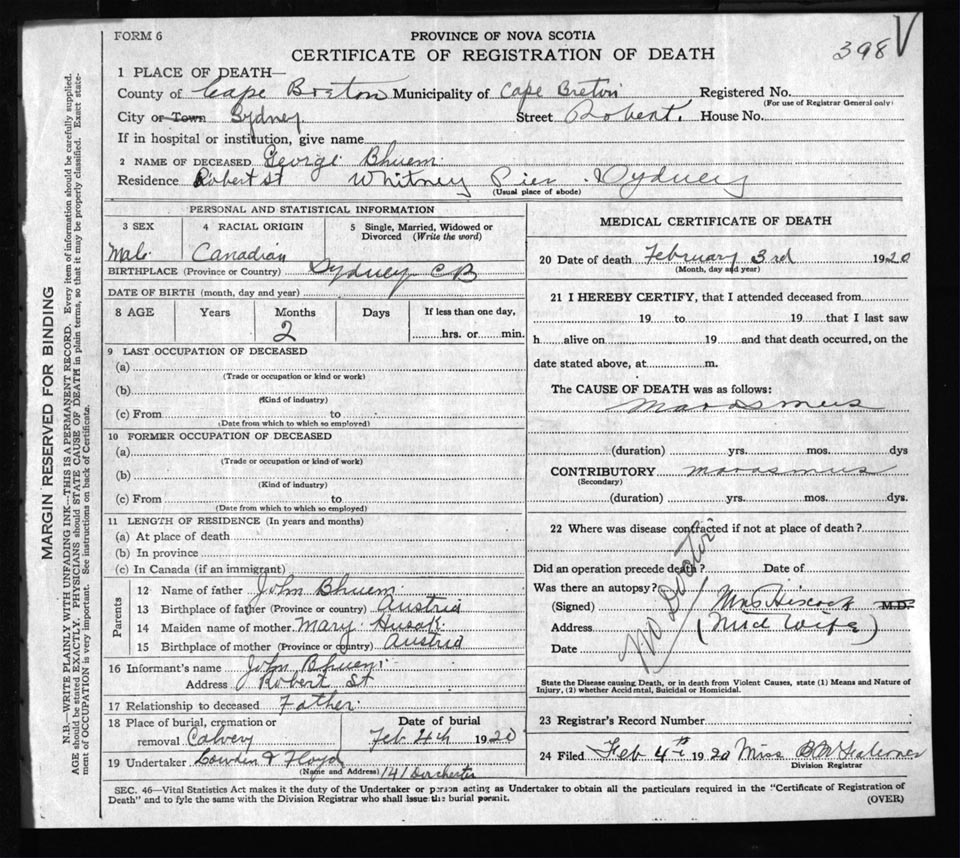 FORM 6
PROVINCE OF NOVA SCOTIA
CERTIFICATE OF REGISTRATION OF DEATH
398
1 PLACE OF DEATH—
County of Cape Breton Municipality of Cape Breton Registered No.
(For use of Registrar General only)
City or Town Sydney Street Robert. House No.
If in hospital or institution, give name
2 NAME OF DECEASED George Bhuem
Residence Robert St Whitney Pier Sydney
(Usual place of abode)
PERSONAL AND STATISTICAL INFORMATION
3 SEX
Male
4 RACIAL ORIGIN
Canadian
5 Single, Married, Widowed or
Divorced (Write the word)
BIRTHPLACE (Province or Country) Sydney CB
DATE OF BIRTH (month, day and year)
8 AGE Years Months Days If less than one day,
2 hrs. or min.
9 LAST OCCUPATION OF DECEASED
(a)
(Trade or occupation or kind or work)
(b)
(Kind of industry)
(c) From to
(Date from which to which so employed)
10 FORMER OCCUPATION OF DECEASED
(a)
(Trade or occupation or kind of work)
(b)
(Kind of industry)
(c) From to
(Date from which to which so employed)
11 LENGTH OF RESIDENCE (In years and months)
(a) At place of death
(b) In province
(c) In Canada (if an immigrant)
Parents
12 Name of father John Bhuem
13 Birthplace of father (Province or country) Austria
14 Maiden name of mother Mary Husak
15 Birthplace of mother (Province or country) Austria
16 Informant's name John Bhuem
Address Robert St
17 Relationship to deceased Father
18 Place of burial, cremation or Date of burial
removal Calvery Feb 4th 1920
19 Undertaker Lowden & Floyd
(Name and Address) 141 Dorchester
MEDICAL CERTIFICATE OF DEATH
20 Date of death February 3rd 1920
(Month, day and year)
21 I HEREBY CERTIFY, that I attended deceased from
19 to 19 that I last saw
h alive on 19 and that death occurred, on the
date stated above, at m.
The CAUSE OF DEATH was as follows:
Marasmus
(duration) yrs. mos. dys
CONTRIBUTORY marasmus
(Secondary)
(duration) yrs. mos. dys.
22 Where was disease contracted if not at place of death?
Did an operation precede death? Date of
Was there an autopsy?
No Doctor
(Signed) Mrs Hiscock M.D.
Address (Mid Wife)
Date
State the Disease causing Death, or in death from Violent Causes, state (1) Means and Nature of
Injury, (2) whether Accidental, Suicidal or Homicidal.
23 Registrar's Record Number
24 Filed Feb 4th 1920 Miss
Division Registrar
SEC. 46—Vital Statistics Act makes it the duty of the Undertaker or person acting as Undertaker to obtain all the particulars required in the "Certificate of Registration of
Death" and to fyle the same with the Division Registrar who shall issue the burial permit.
(OVER)
MARGIN RESERVED FOR BINDING
N.B.—WRITE PLAINLY WITH UNFADING INK—THIS IS A PERMANENT RECORD. Every item of information should be carefully supplied.
AGE should be stated EXACTLY. PHYSICIANS should STATE CAUSE OF DEATH in plain terms, so that it may be properly classified. Exact state-
ment of OCCUPATION is very important. See instructions on back of Certificate.